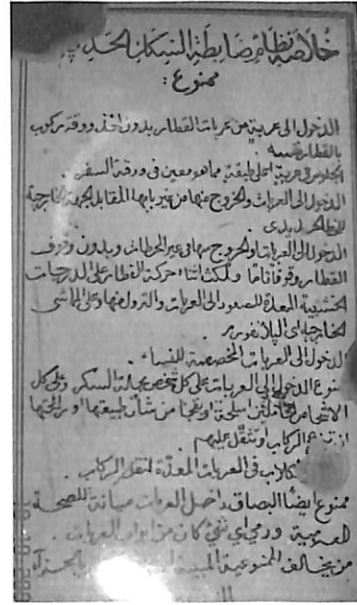 خلاصة نظام ضابطة السكك الحديدية
ممنوع :
الدخول الى عربية من عربات القطار بدون اخذ ورقة ركوب
بالقطار نفسه .
الجلوس في عربية اعلى طبقة مما هو معين في ورقة السفر .
الدخول الى العربات والخروج منها من غير بابها المقابل لجهة الخارجية
للخط الحديدي .
الدخول الى العربات والخروج منها في غير المحطات وبدون وقوف
القطار وقوفا تاما والمكث اثناء حركة القطار على الدرجات
الخشبية المعدة للصعود الى العربات والنزول منها وعلى الماشي
الخارجية اي البلانفورم .
الدخول الى العربات المخصصة للنساء .
ممنوع الدخول الى العربات على كل شخص بحالة السكر وعلى كل
الاشخاص حاملين اسلحة او شيئا من شأن طبيعتها او رائحتها
ان تزعج الركاب او تثقل عليهم
كلاب في العربات المعدة لنقل الركاب .
ممنوع ايضا البصاق داخل العربات صيانة للصحة
العمومية ورمي اي شئ كان من ابواب العربات .
من يخالف الممنوعية المبينة